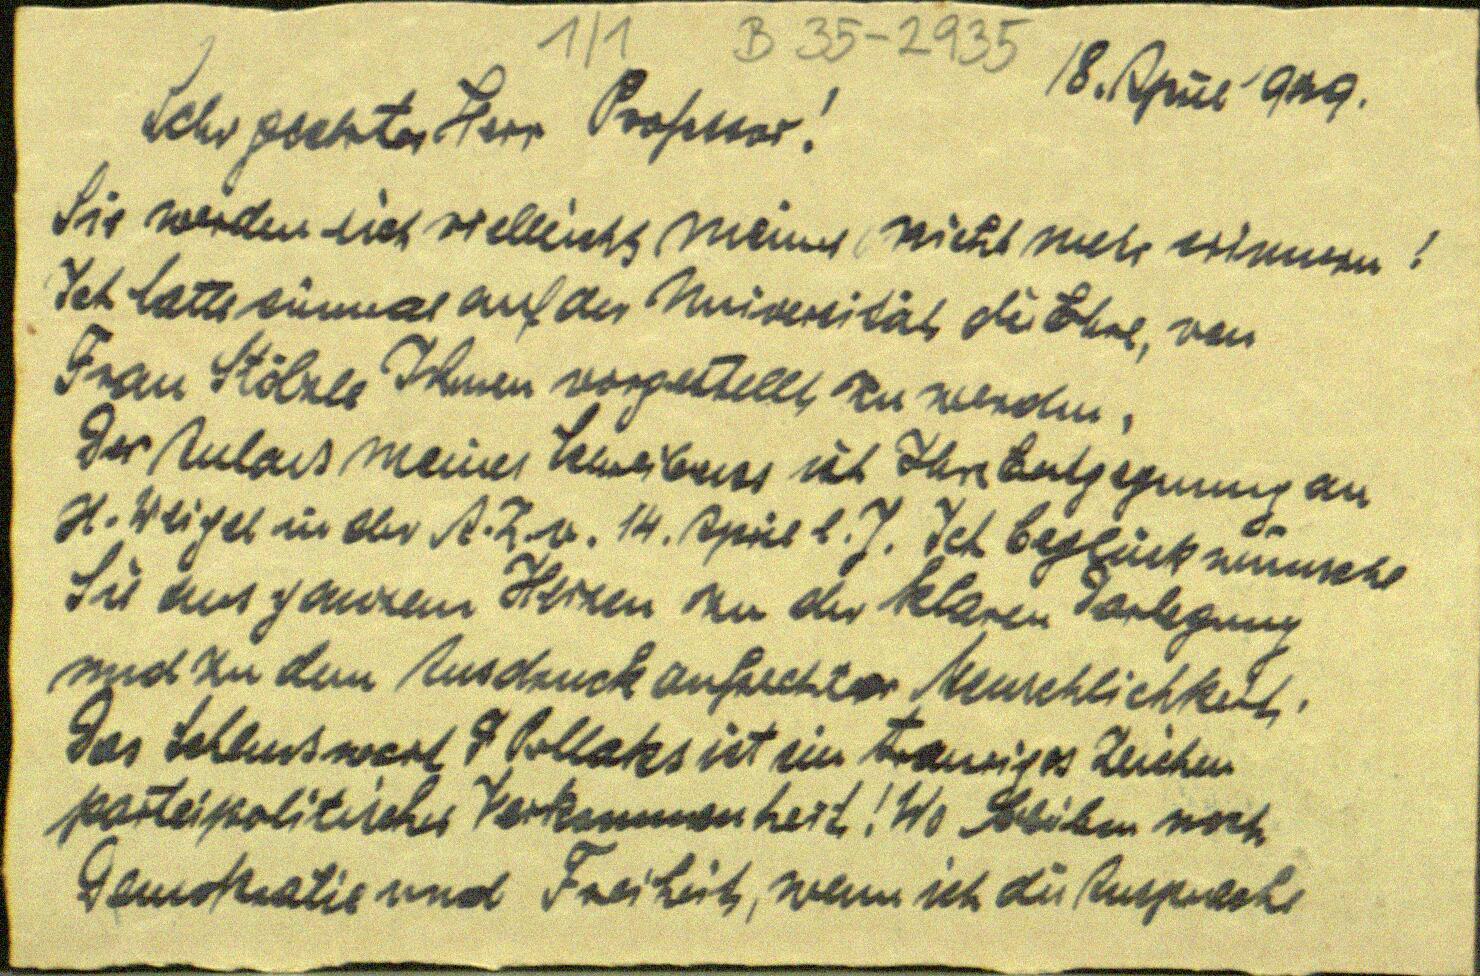 1/1 B 35-2935
18. April 1949.
Sehr geehrter Herr Professor!
Sie werden sich vielleicht meiner nicht mehr erinnern!
Ich hatte einmal auf der Universität die Ehre, von
Frau Stölzle Ihnen vorgestellt zu werden.
Der Anlass meines Schreibens ist Ihre Entgegnung an
H. Weigel in der A.Z. v. 14. April l. J. Ich beglückwünsche
Sie aus ganzem Herzen zu der klaren Darlegung
und zu dem Ausdruck aufrechter Menschlichkeit.
Das Schlusswort Pollaks ist ein trauriges Zeichen
parteipolitischer Verkommenheit! Wo bleiben noch
Demokratie und Freiheit, wenn ich die Aussprache